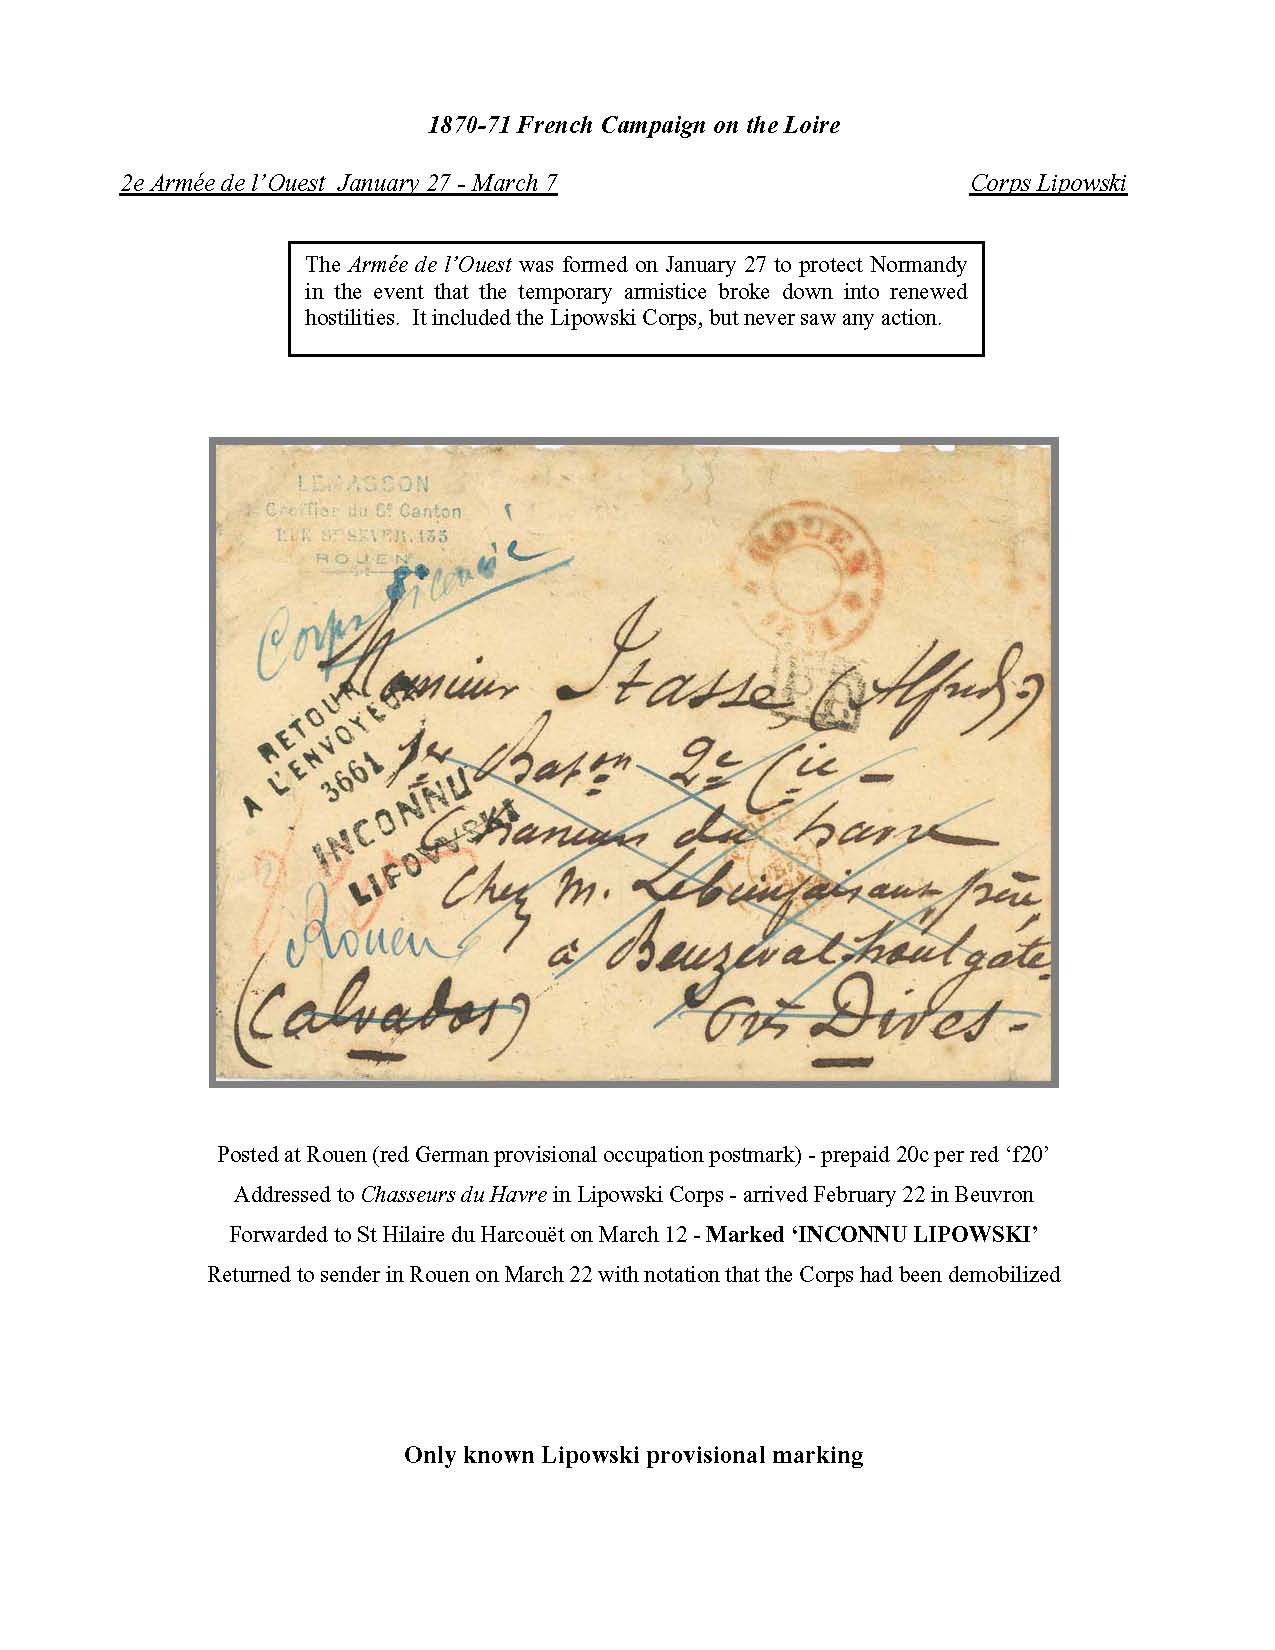 1870-71 French Campaign on the Loire
2e Armée de l’Ouest January 27 - March 7 Corps Lipowski
The Armée de l’Ouest was formed on January 27 to protect Normandy
in the event that the temporary armistice broke down into renewed
hostilities. It included the Lipowski Corps, but never saw any action.
LEMASSON
Greffier du 6e Canton
RUE St SEVER, 135
ROUEN
ROUEN
Corps licencié
Monsieur Itasse (Alfred)
RETOUR
A L'ENVOYEUR
3661
1er Baton 2e Cie -
INCONNU
LIPOWSKI
Chasseurs du havre
Chez M. Lebienfaisant père
Rouen
à Beuzeval-houlgate
près Dives -
(Calvados)
Posted at Rouen (red German provisional occupation postmark) - prepaid 20c per red ‘f20’
Addressed to Chasseurs du Havre in Lipowski Corps - arrived February 22 in Beuvron
Forwarded to St Hilaire du Harcouët on March 12 - Marked ‘INCONNU LIPOWSKI’
Returned to sender in Rouen on March 22 with notation that the Corps had been demobilized
Only known Lipowski provisional marking